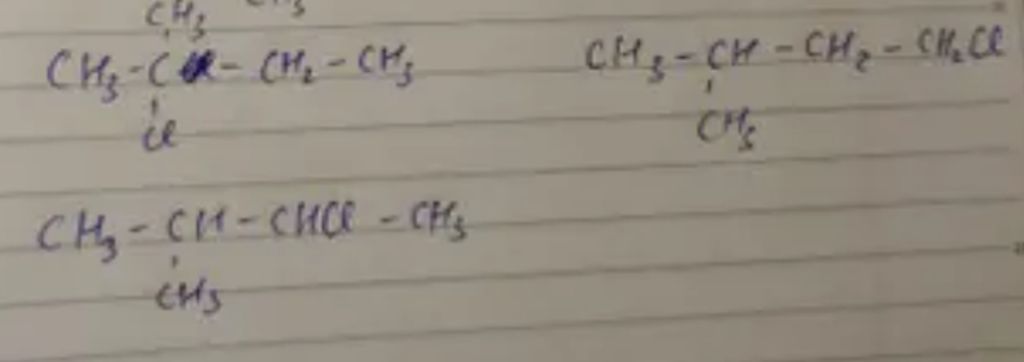 CH3 CH3
CH3-C-CH2-CH3 CH3-CH-CH2-CH2Cl
Cl CH3
CH3-CH-CHCl-CH3
CH3